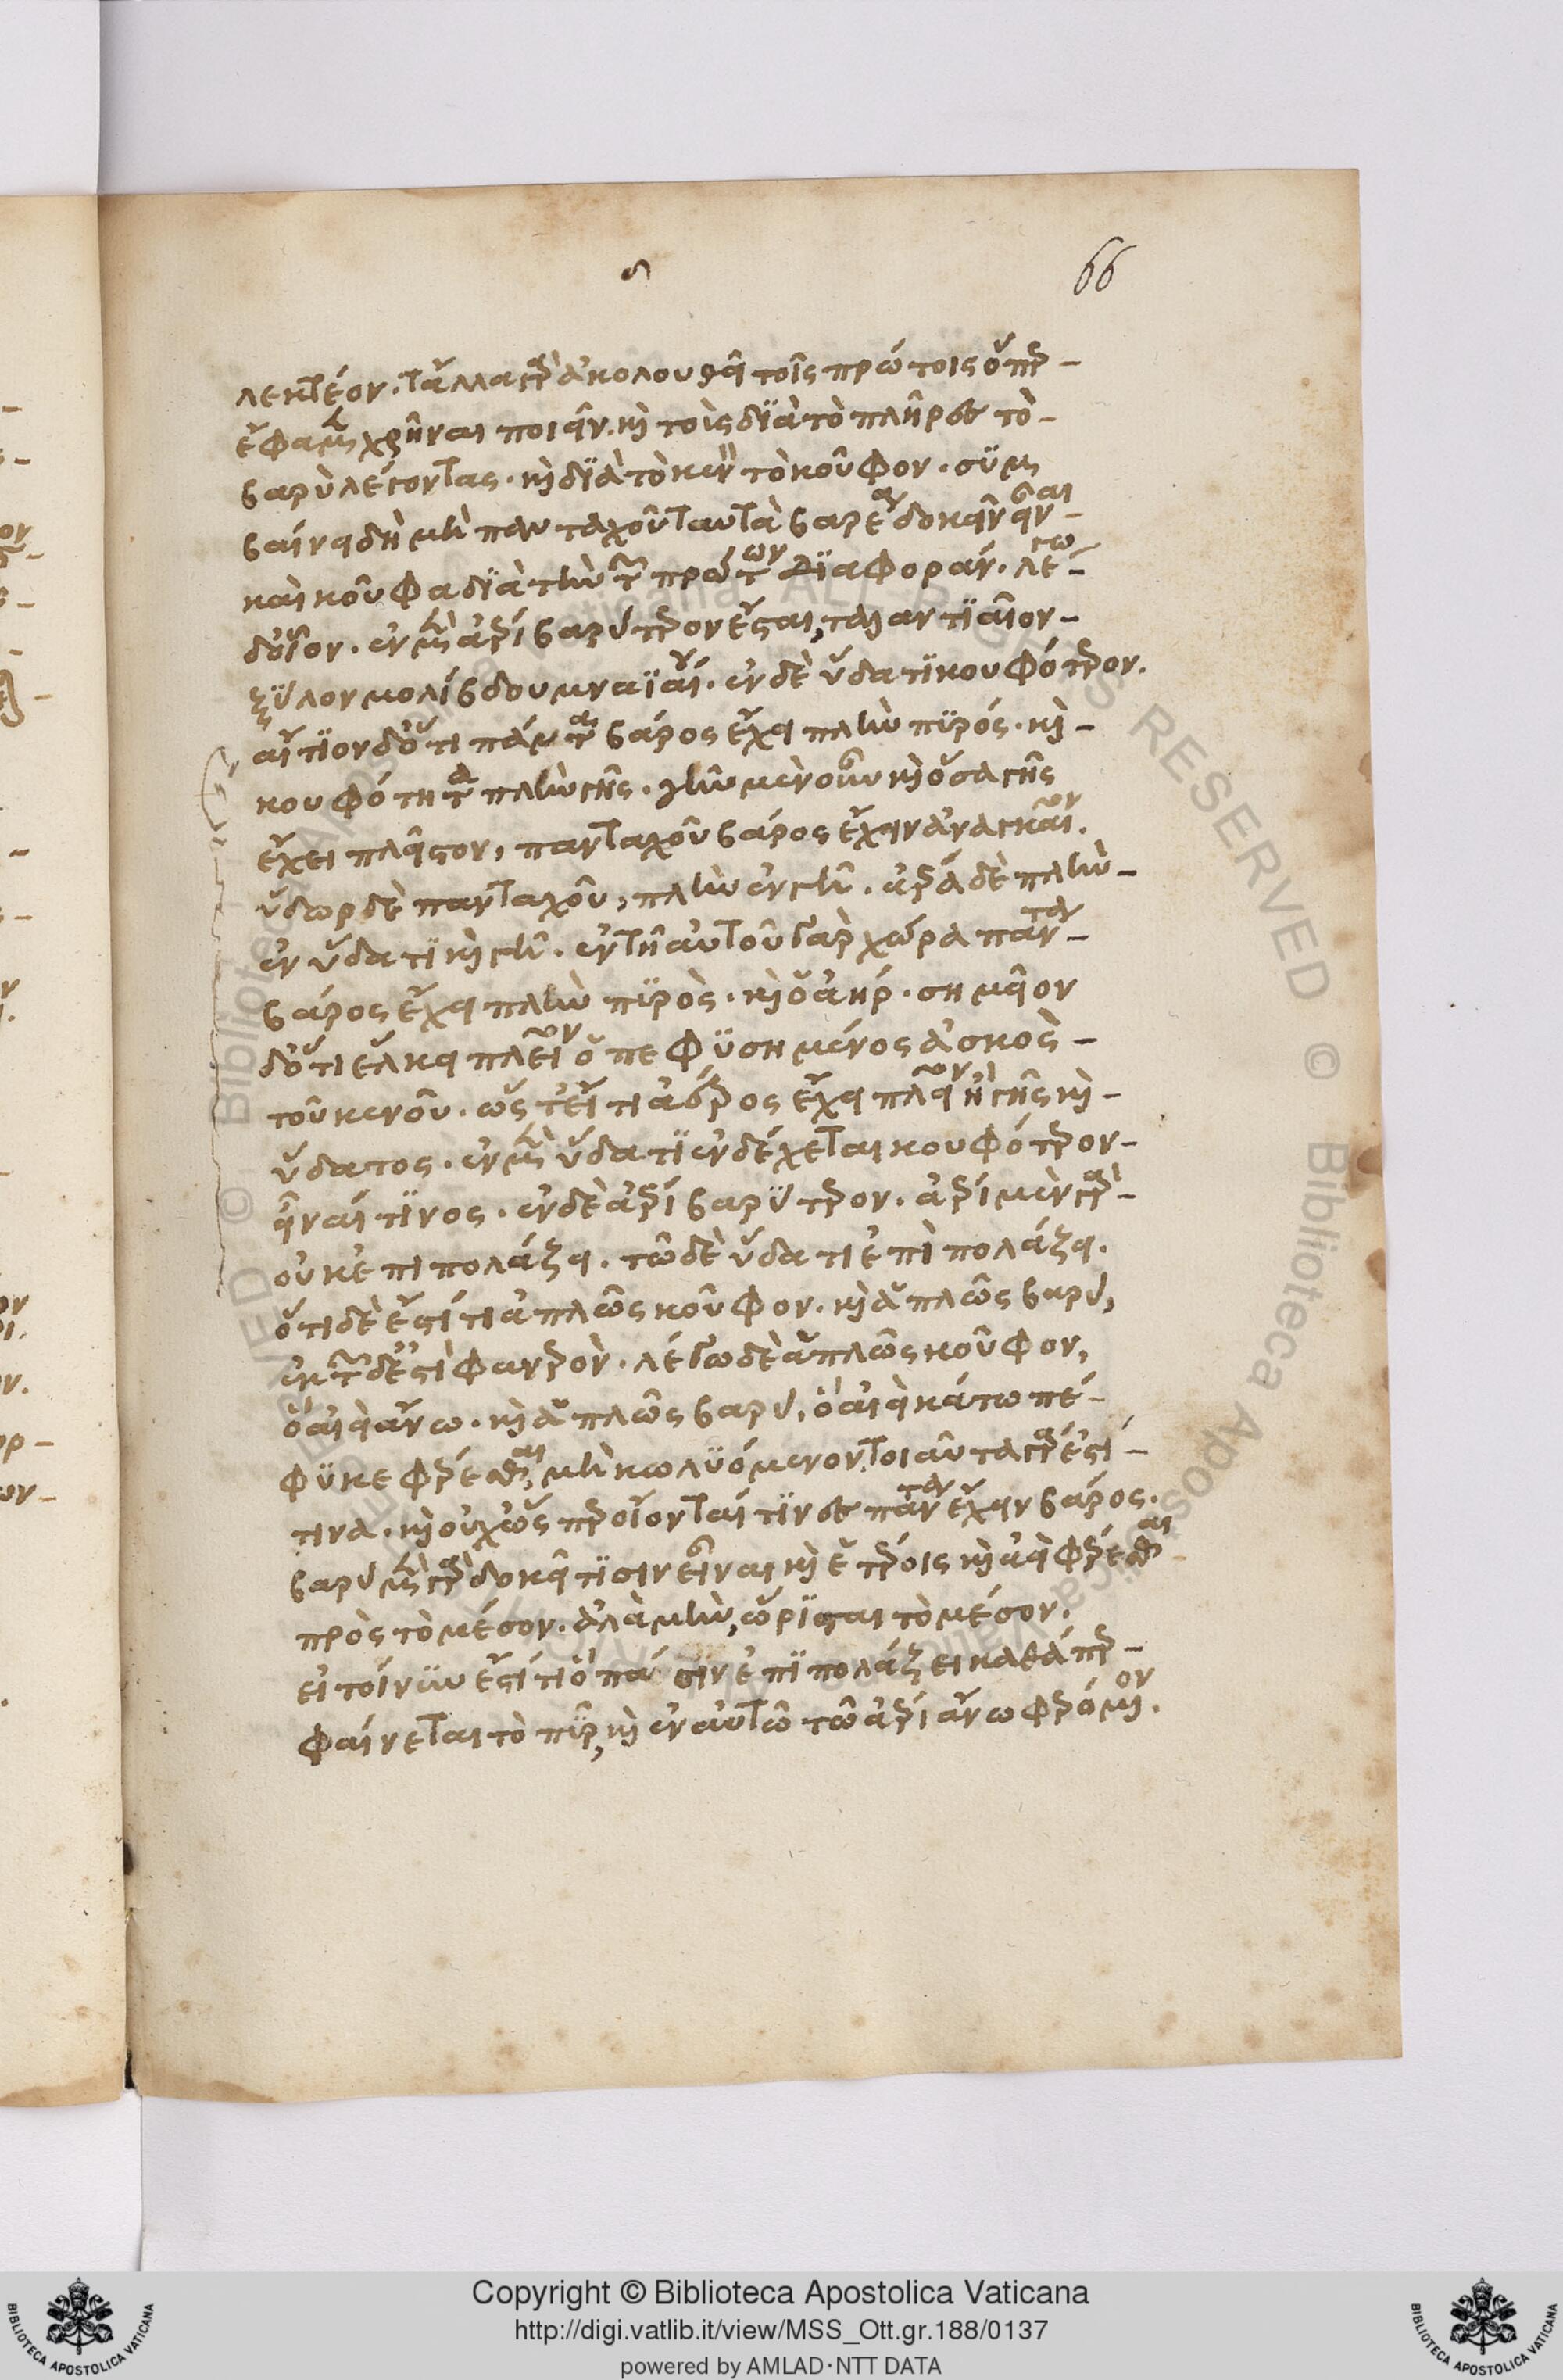 ς 66
λεκτέον. τἄλλα γὰρ ἀκολουθεῖ τοῖς πρώτοις ὅπερ –
ἔφαμεν χρῆναι ποιεῖν. καὶ τοῖς διὰ τὸ πλῆρες τὸ –
βαρὺ λέγοντας. καὶ διὰ τὸ κενὸν τὸ κοῦφον. συμ
βαίνει δὴ μὴ πανταχοῦ ταυτὰ βαρέα δοκεῖν εἶναι –
καὶ κοῦφα διὰ τὴν τῶν πρώτων διαφοράν. λέγω –
δ' οἷον. ἐν μὲν ἀέρι βαρύτερον ἔσται, ταλαντιαῖον –
ξύλον μολίβδου μναϊαίου. ἐν δὲ ὕδατι κουφότερον.
αἴτιον δ' ὅτι πάντα βάρος ἔχει πλὴν πυρός. καὶ –
κουφότητα πλὴν γῆς. γῆν μὲν οὖν καὶ ὅσα γῆς
ἔχει πλεῖστον, πανταχοῦ βάρος ἔχειν ἀναγκαῖον.
ὕδωρ δὲ πανταχοῦ, πλὴν ἐν γῆ. ἀέρα δὲ πλὴν –
ἐν ὕδατι καὶ γῆ. ἐν τῆ αυτοῦ γὰρ χώρα πάντα –
βάρος ἔχει πλὴν πυρὸς. καὶ ὁ ἀήρ. σημεῖον
δ' ὅτι ἕλκει πλεῖον ὁ πεφυσημένος ἀσκὸς –
τοῦ κενοῦ. ὥστ' εἴ τι ἀέρος ἔχει πλεῖον ἢ γῆς καὶ –
ὕδατος. ἐν μὲν ὕδατι ἐνδέχεται κουφότερον –
εἶναί τινος. ἐν δὲ ἀέρι βαρύτερον. ἀέρι μὲν γὰρ –
οὐκ ἐπιπολάζει. τῶ δὲ ὕδατι ἐπιπολάζει.
ὅτι δὲ ἔστί τι ἁπλῶς κοῦφον. καὶ ἁπλῶς βαρύ,
ἐκ τῶνδ' ἐστὶ φανερόν. λέγω δὲ ἁπλῶς κοῦφον,
ὃ ἀεὶ ἄνω. καὶ ἁπλῶς βαρύ, ὃ ἀεὶ κάτω πέ –
φυκε φέρεσθαι, μὴ κωλυόμενον, τοιαῦτα γὰρ ἐστί –
τινα. καὶ οὐχ ὥς περ οἴονταί τινες πάντα ἔχειν βάρος.
βαρὺ μὲν γὰρ δοκεῖ τισιν εἶναι καὶ ἑτέροις καὶ ἀεὶ φέρεσθαι –
πρὸς τὸ μέσον. ἀλλὰ μὴν, ὥρισται τὸ μέσον.
εἰ τοίνυν ἔστί τι ὃ πᾶσιν ἐπιπολάζει καθάπερ –
φαίνεται τὸ πῦρ, καὶ ἐν αὐτῶ τῶ ἀέρι ἄνω φερόμενον.
Copyright © Biblioteca Apostolica Vaticana
http://digi.vatlib.it/view/MSS_Ott.gr.188/0137
powered by AMLAD·NTT DATA